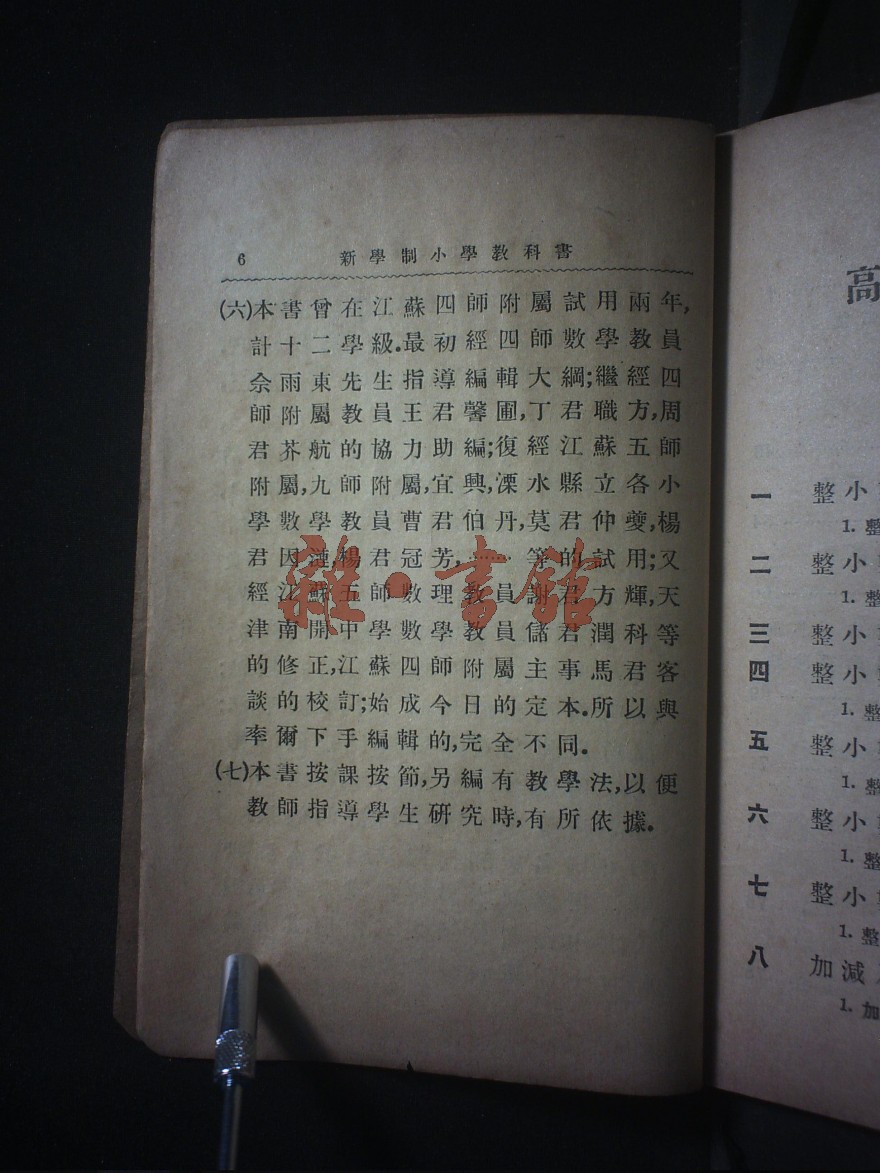 6 新學制小學教科書
(六)本書曾在江蘇四師附屬試用兩年,
計十二學級.最初經四師數學教員
佘雨東先生指導編輯大綱;繼經四
師附屬教員王君馨圃,丁君職方,周
君芥航的協力助編;復經江蘇五師
附屬,九師附屬,宜興,溧水縣立各小
學數學教員曹君伯丹,莫君仲夔,楊
君因漣,楊君冠芳,……等的試用;又
經江蘇五師數理教員謝君方輝,天
津南開中學數學教員儲君潤科等
的修正,江蘇四師附屬主事馬君客
談的校訂;始成今日的定本.所以與
率爾下手編輯的,完全不同.
(七)本書按課按節,另編有教學法,以便
教師指導學生研究時,有所依據.
雜·書館
高
一 整小
1. 整
二 整小
1. 整
三 整小
四 整小
1. 整
五 整小
1. 整
六 整小
1. 整
七 整小
1. 整
八 加減
1. 加